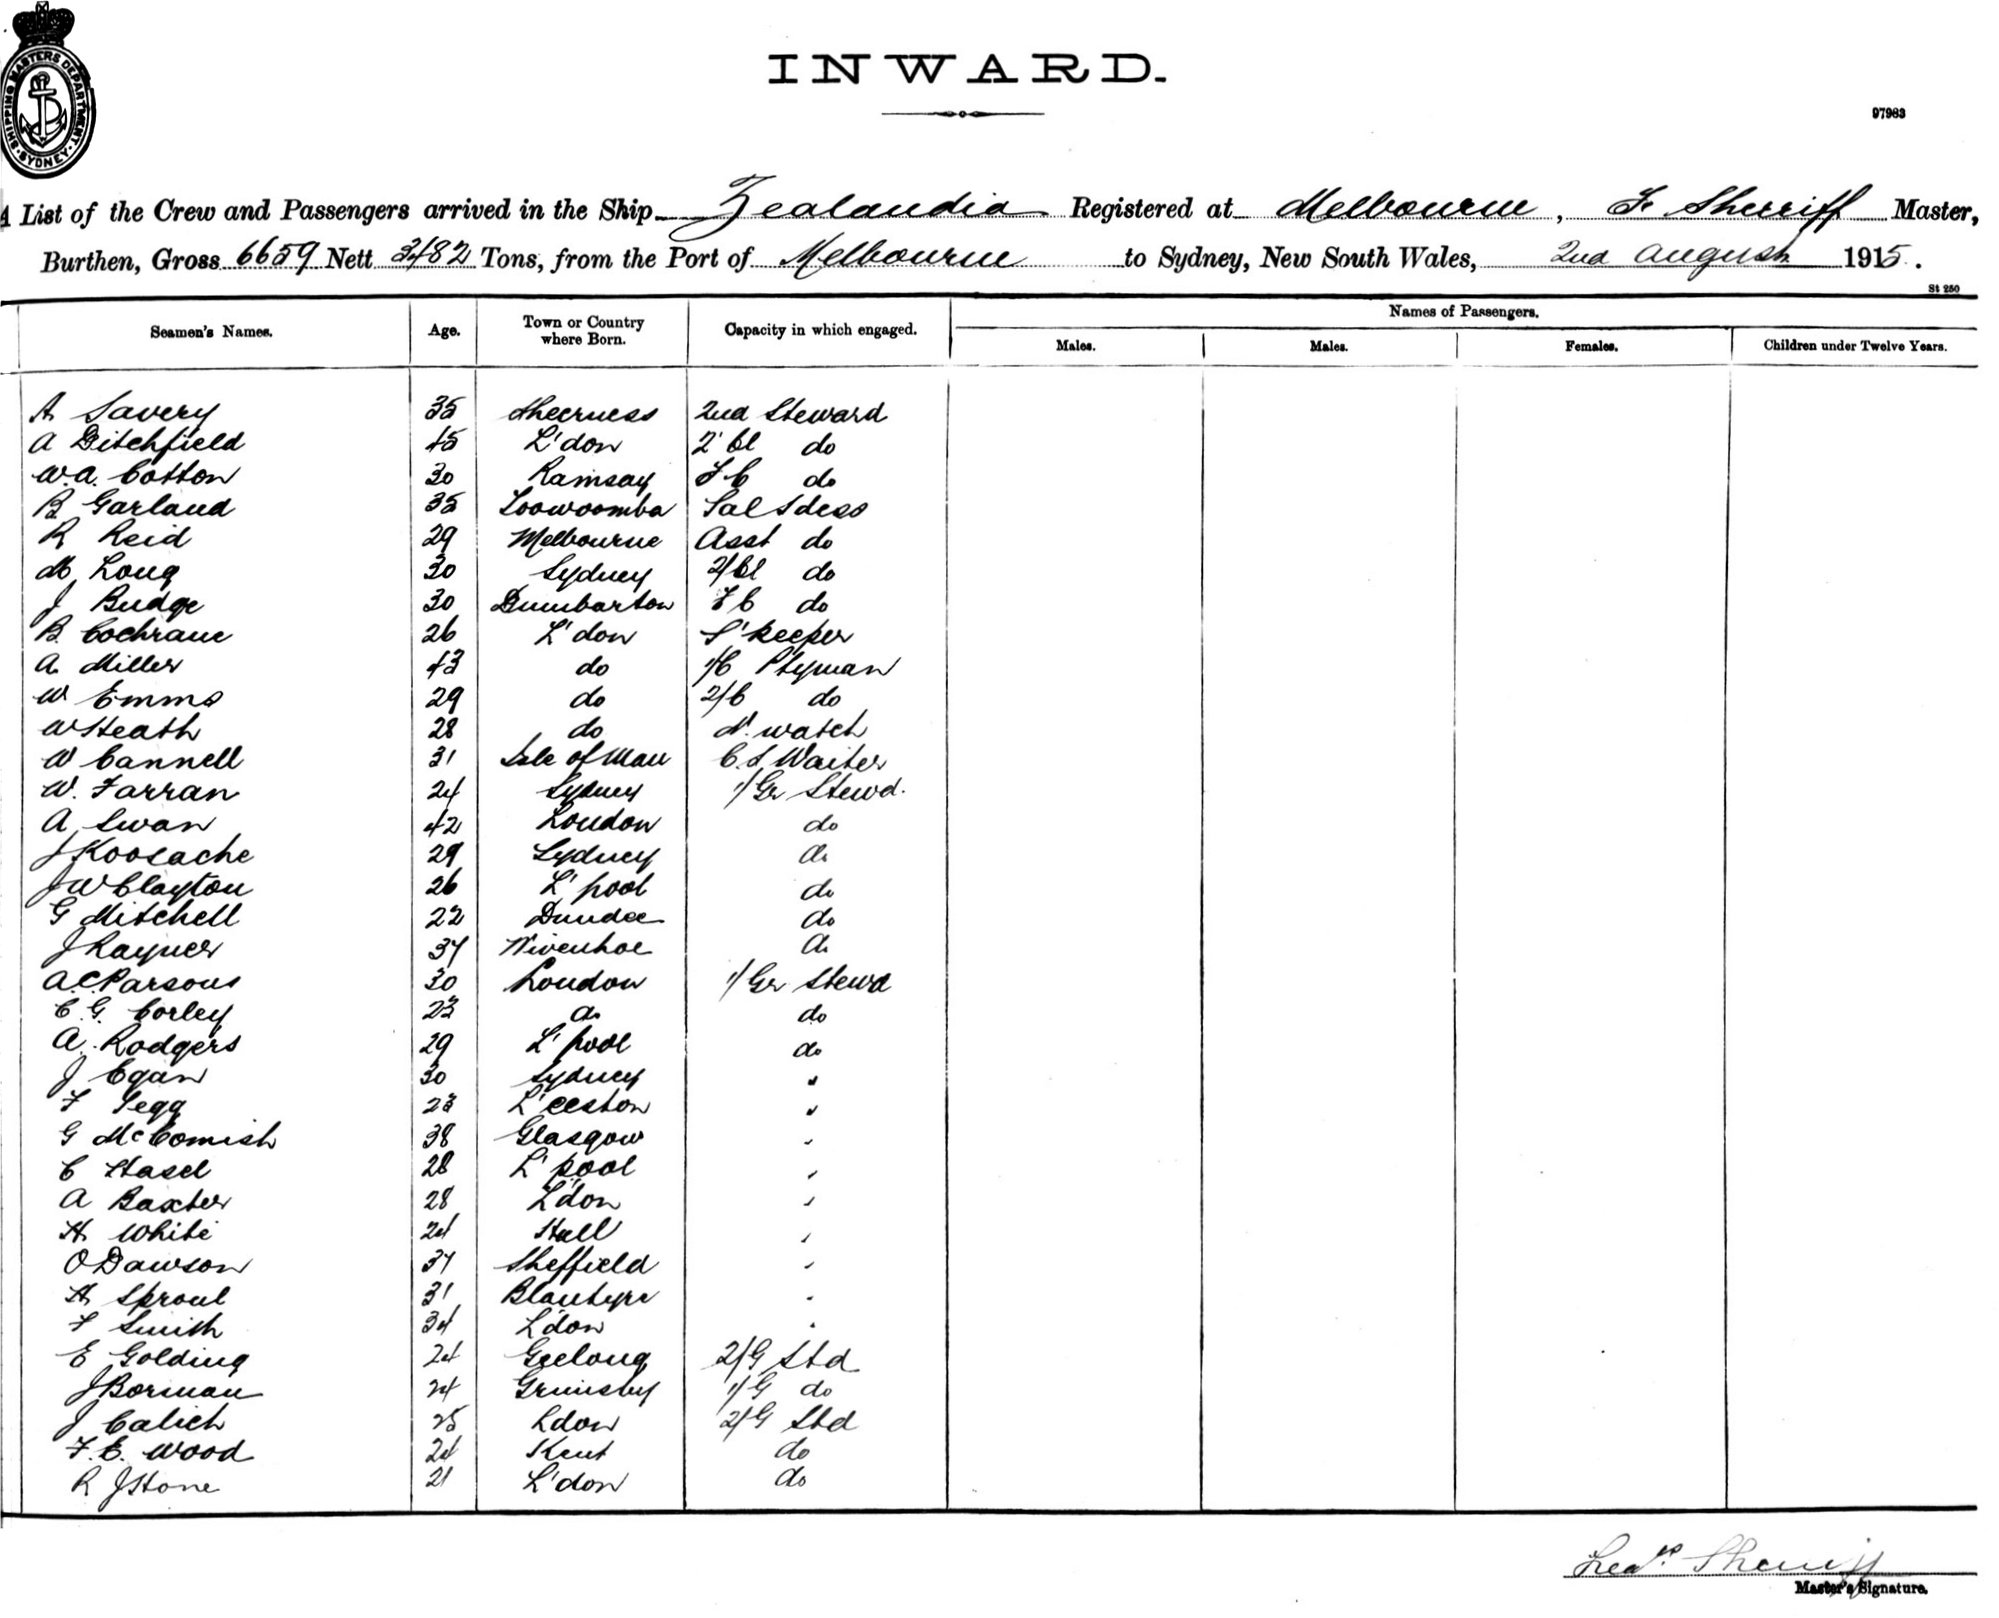 SHIPPING MASTERS DEPARTMENT. SYDNEY.
INWARD.
97983
A List of the Crew and Passengers arrived in the Ship Zealandia Registered at Melbourne, F. Sherriff Master,
Burthen, Gross 6659 Nett 3482 Tons, from the Port of Melbourne to Sydney, New South Wales, 2nd August 1915.
St 250
Seamen's Names. Age. Town or Country where Born. Capacity in which engaged. Names of Passengers.
Males. Males. Females. Children under Twelve Years.
A Savery 35 Sheerness 2nd Steward
A Ditchfield 45 L'don 2' Cl do
W.A. Cotton 30 Ramsay F C do
B Garland 35 Toowoomba Sal Sdess
R Reid 29 Melbourne Asst do
M Long 30 Sydney 2/Cl do
J Budge 30 Dumbarton F C do
B. Cochrane 26 L'don S'keeper
A Miller 43 do 1/C P'tyman
W Emms 29 do 2/C do
W Heath 28 do N. watch
W Cannell 31 Isle of Man C.S Waiter
W. Farran 24 Sydney 1/Gr Stewd.
A Swan 42 London do
J Koosache 29 Sydney do
J W Clayton 26 L'pool do
G Mitchell 22 Dundee do
J Rayner 37 Wivenhoe do
A.C Parsons 30 London 1/Gr Stewd
C. G. Corley 23 do do
A. Rodgers 29 L'pool do
J Egan 30 Sydney "
F Tegg 23 L'ceston "
G McComish 38 Glasgow "
C Hasel 28 L'pool "
A Baxter 28 L'don "
H White 24 Hull "
O Dawson 37 Sheffield "
H Sproul 31 Blantyre "
F Smith 34 L'don "
E Golding 24 Geelong 2/G Std
J Borman 24 Grimsby 1/G do
J Calich 25 Ldon 2/G Std
F. E. Wood 24 Kent do
R J Stone 21 L'don do
Fredk. Sherriff
Master's Signature.